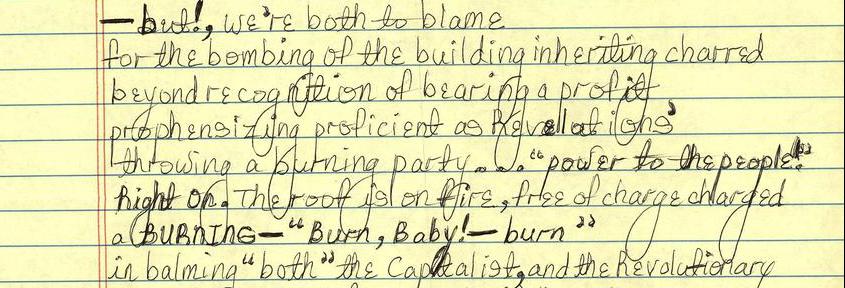 —but!, we're both to blame
for the bombing of the building inheriting charred
beyond recognition of bearing a profit
prophensizing proficient as Revelations'
throwing a burning party.... "power to the people!"
Right On. The roof is on fire, free of charge charged
a BURNING—"Burn, Baby!—burn"
in balming "both" the Capitalist, and the Revolutionary